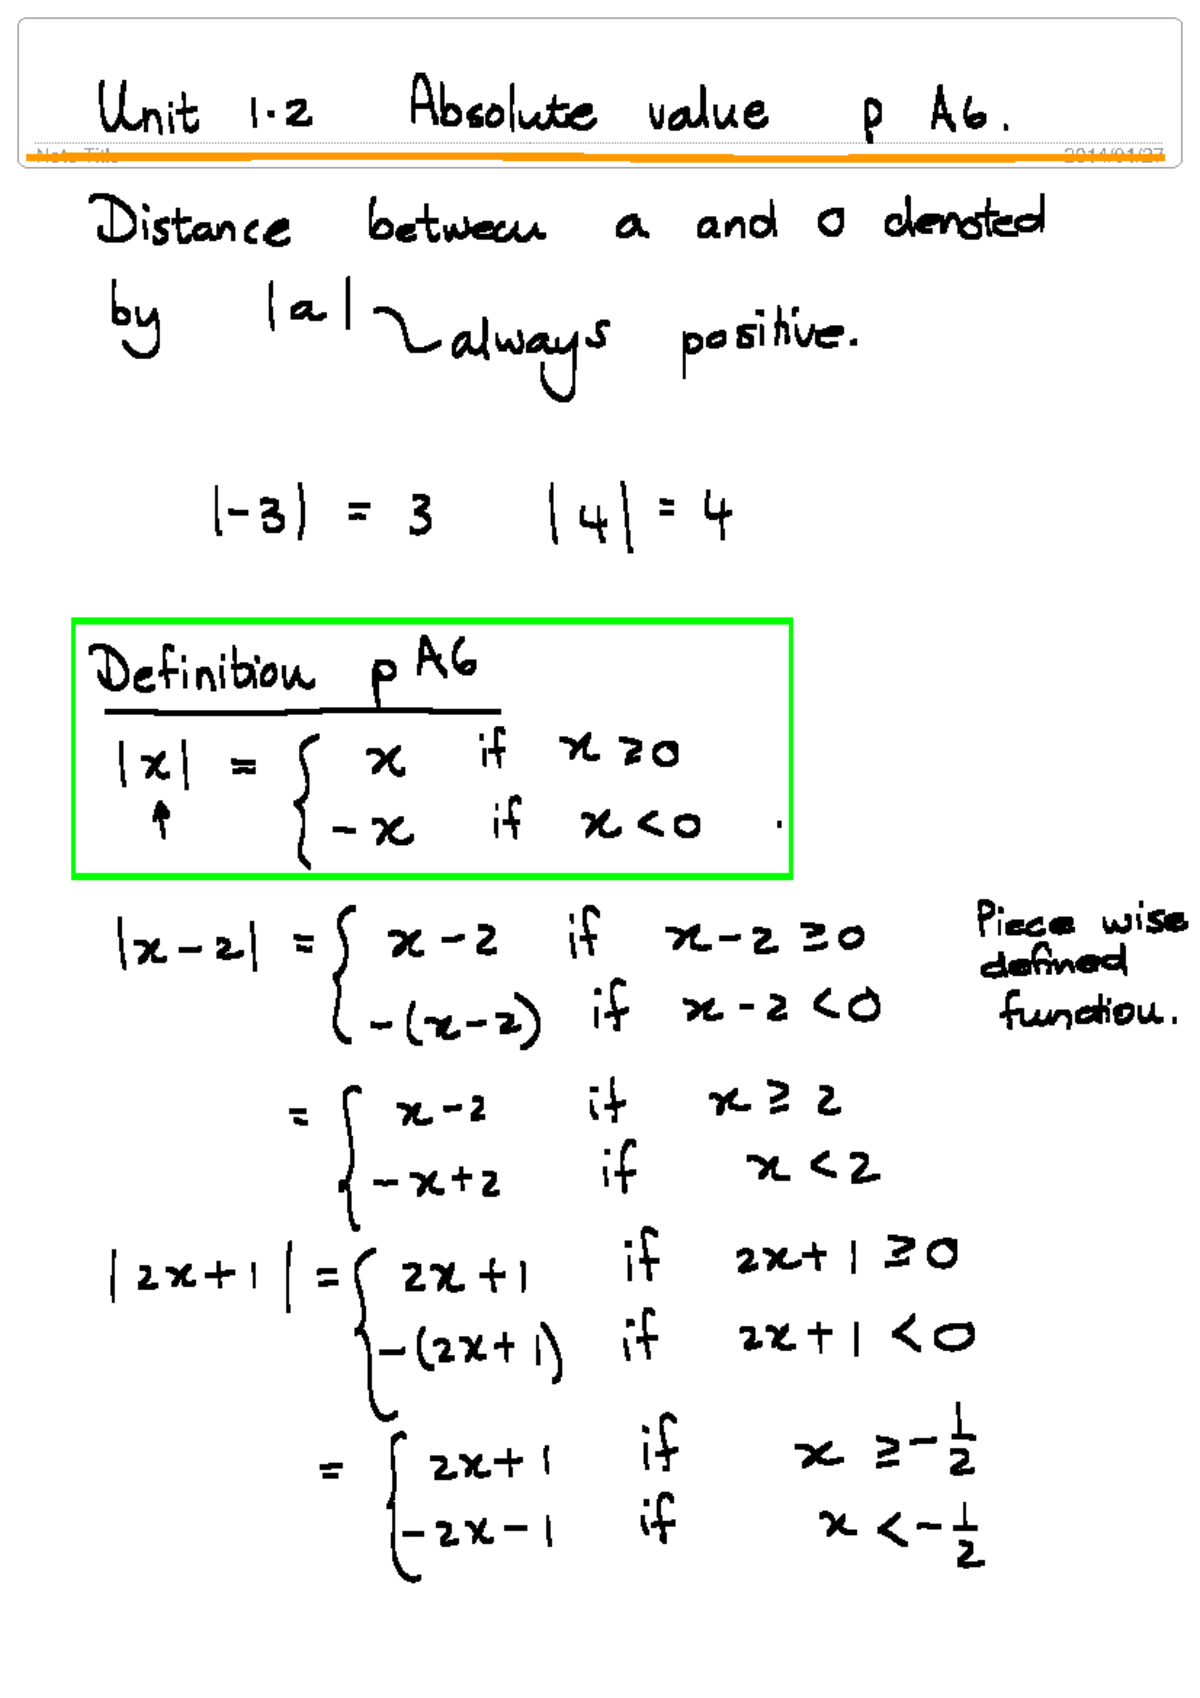 Unit 1.2 Absolute value p A6.
Note Title 2014/01/27
Distance between a and 0 denoted
by |a| always positive.
|-3| = 3 |4| = 4
Definition p A6
|x| = { x if x ≥ 0
- x if x < 0
|x - 2| = { x - 2 if x - 2 ≥ 0
-(x - 2) if x - 2 < 0
Piece wise
defined
function.
= { x - 2 if x ≥ 2
- x + 2 if x < 2
|2x + 1| = { 2x + 1 if 2x + 1 ≥ 0
-(2x + 1) if 2x + 1 < 0
= { 2x + 1 if x ≥ - 1/2
- 2x - 1 if x < - 1/2